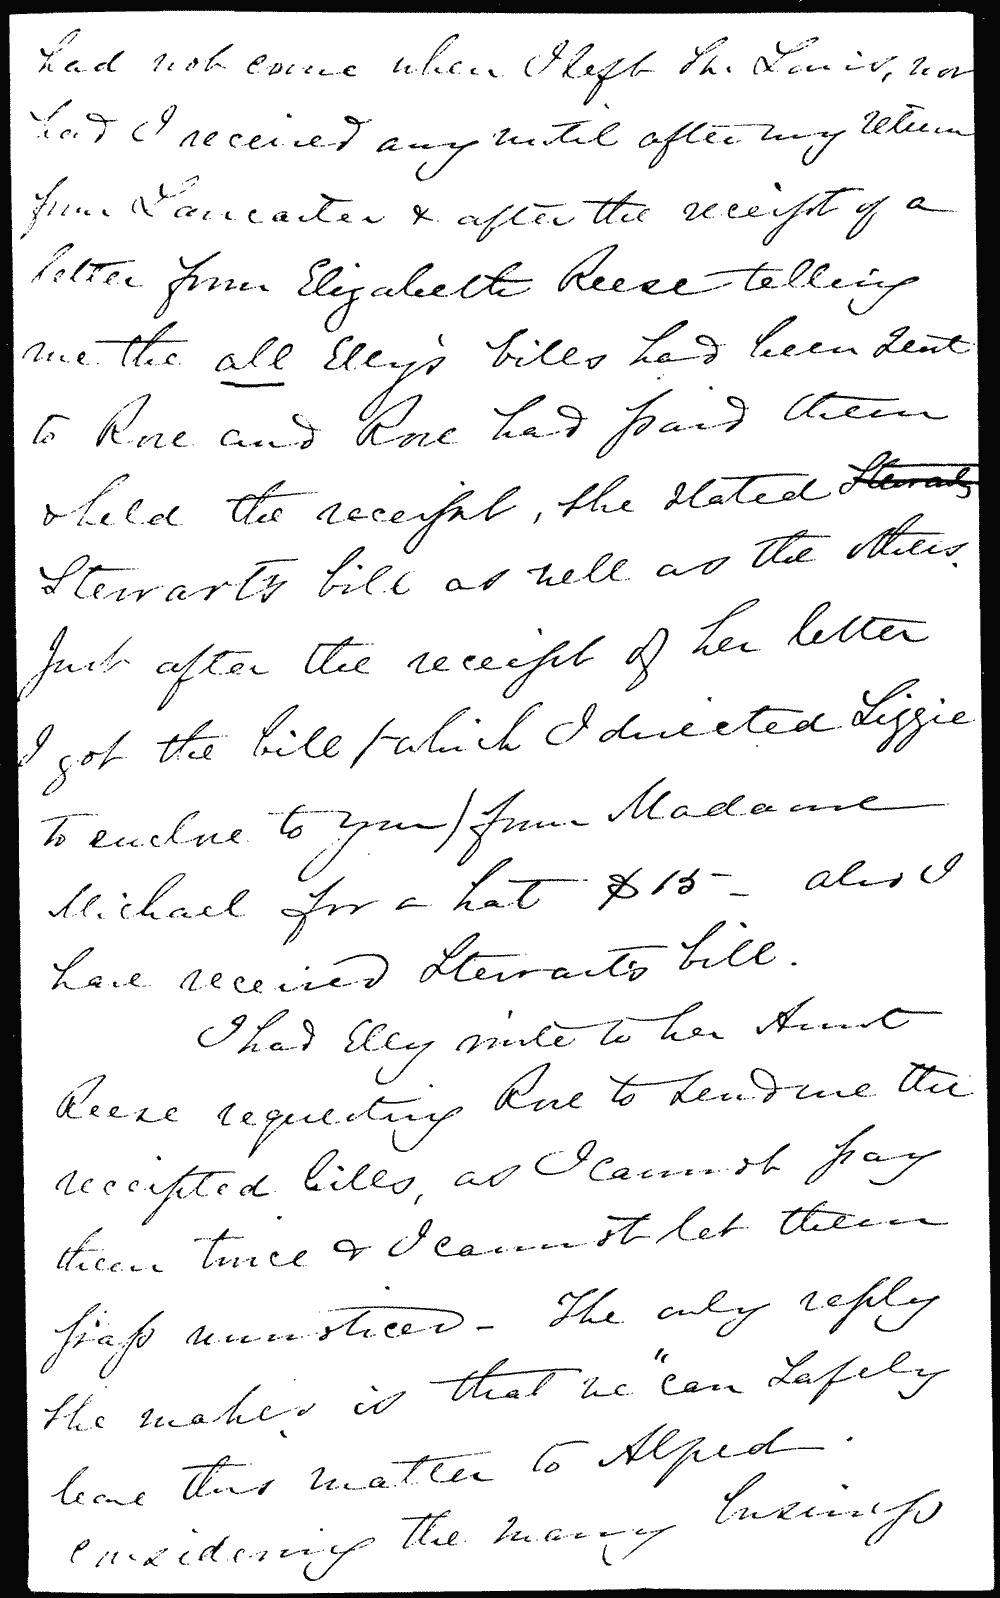 had not come when I left St. Louis, nor
had I received any until after my return
from Lancaster & after the receipt of a
letter from Elizabeth Reese telling
me the all Elly's bills had been sent
to Rose and Rose had paid them
& held the receipt, she stated Stewarts
Stewart's bill as well as the others.
Just after the receipt of her letter
I got the bill (which I directed Lizzie
to enclose to you) from Madame
Michael for a hat $15 – also I
have received Stewart's bill.
I had Elly write to her Aunt
Reese requesting Rose to send me the
receipted bills, as I cannot pay
them twice & I cannot let them
pass unnoticed – The only reply
she makes is that we "can safely
leave this matter to Alfred.
considering the many business